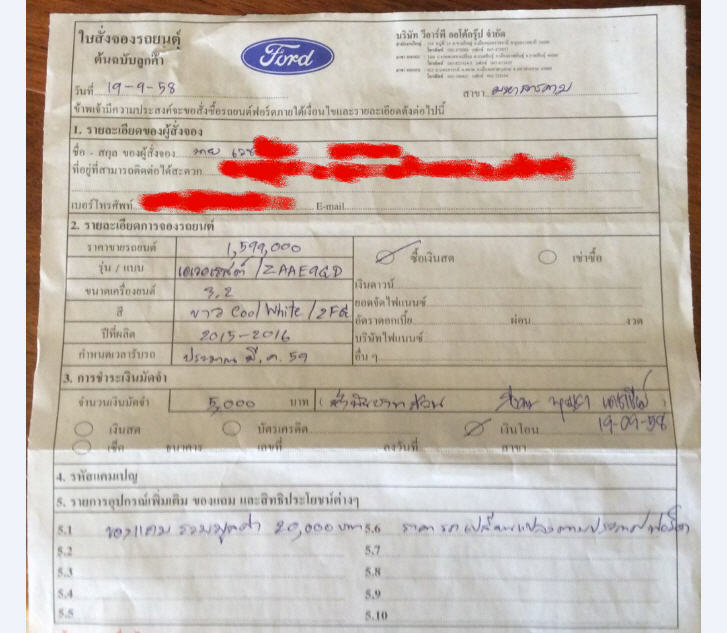 ใบสั่งจองรถยนต์
ต้นฉบับลูกค้า
Ford
บริษัท วีอาร์พี ออโต้กรุ๊ป จำกัด
วันที่ 19-9-58 สาขา มหาสารคาม
ข้าพเจ้ามีความประสงค์จะขอสั่งซื้อรถยนต์ฟอร์ดภายใต้เงื่อนไขและรายละเอียดดังต่อไปนี้
1. รายละเอียดของผู้สั่งจอง
ชื่อ - สกุล ของผู้สั่งจอง นาย
ที่อยู่ที่สามารถติดต่อได้สะดวก
เบอร์โทรศัพท์ E-mail
2. รายละเอียดการจองรถยนต์
ราคาขายรถยนต์ 1,599,000 ซื้อเงินสด เช่าซื้อ
รุ่น / แบบ เอเวอเรสต์ / ZAAE9GD เงินดาวน์
ขนาดเครื่องยนต์ 3,2 ยอดจัดไฟแนนซ์
สี ขาว Cool White / 2FG อัตราดอกเบี้ย ผ่อน งวด
ปีที่ผลิต 2015-2016 บริษัทไฟแนนซ์
กำหนดเวลารับรถ ประมาณ มี.ค. 59 อื่น ๆ
3. การชำระเงินมัดจำ
จำนวนเงินมัดจำ 5,000 บาท ( ห้าพันบาทถ้วน
เงินสด บัตรเครดิต เงินโอน 19-09-58
เช็ค ธนาคาร เลขที่ ลงวันที่ สาขา
4. รหัสแคมเปญ
5. รายการอุปกรณ์เพิ่มเติม ของแถม และสิทธิประโยชน์ต่างๆ
5.1 ของแถม รวมมูลค่า 20,000 บาท 5.6 ราคารถเปลี่ยนแปลงตามประกาศฟอร์ด
5.2 5.7
5.3 5.8
5.4 5.9
5.5 5.10